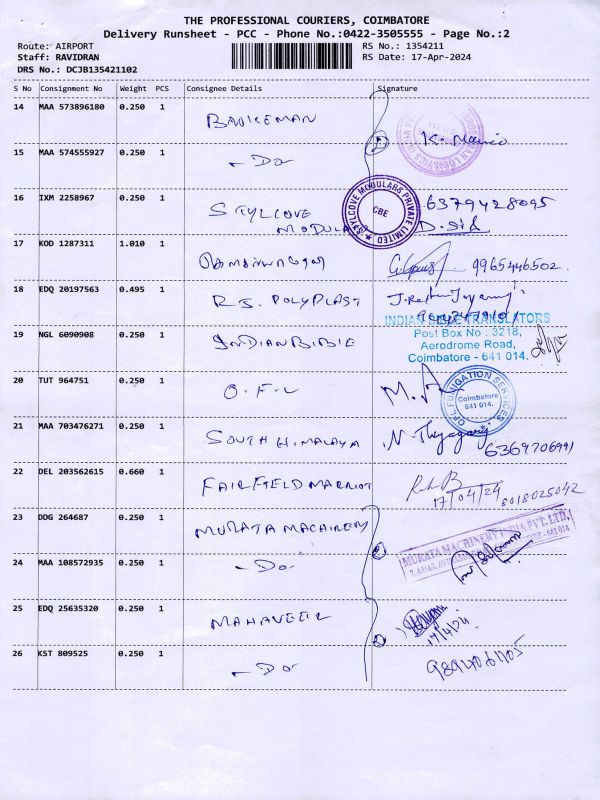 THE PROFESSIONAL COURIERS, COIMBATORE
Delivery Runsheet - PCC - Phone No.:0422-3505555 - Page No.:2
Route: AIRPORT
RS No.: 1354211
Staff: RAVIDRAN
RS Date: 17-Apr-2024
DRS No.: DCJB135421102
S No Consignment No Weight PCS Consignee Details Signature
14 MAA 573896180 0.250 1
15 MAA 574555927 0.250 1 - Do
16 IXM 2258967 0.250 1 STYLCOVE MODULA 6379428095
STYLCOVE MODULABS PRIVATE LIMITED
CBE
17 KOD 1287311 1.010 1 9965446502
18 EDQ 20197563 0.495 1 R.S. POLYPLAST
19 NGL 6090908 0.250 1 INDIAN BIBLE
INDIAN BIBLE TRANSLATORS
Post Box No : 3218,
Aerodrome Road,
Coimbatore - 641 014.
20 TUT 964751 0.250 1 O.F.L
OFL FUMIGATION SERVICES
Coimbatore
641 014.
21 MAA 703476271 0.250 1 SOUTH HIMALAYA N. 6369706991
22 DEL 203562615 0.660 1 FAIRFIELD MARRIOT 17/04/24 8018025042
23 DDG 264687 0.250 1 MURATA MACHINERY
MURATA MACHINERY INDIA PVT. LTD.
24 MAA 108572935 0.250 1 - Do
25 EDQ 25635320 0.250 1 MAHAVEER 17/4/24
26 KST 809525 0.250 1 - Do